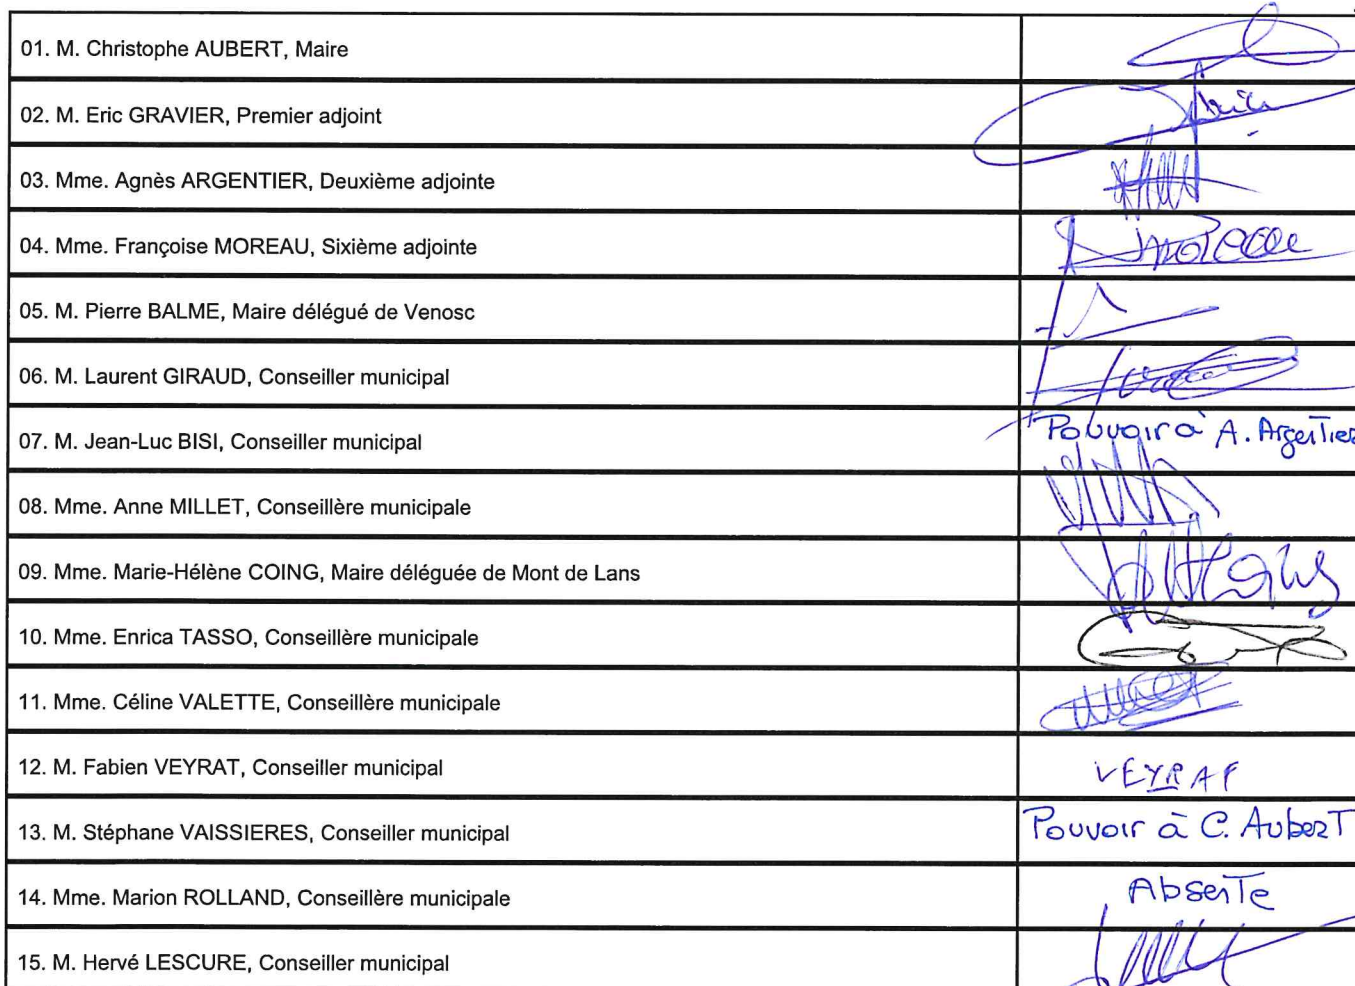 01. M. Christophe AUBERT, Maire
02. M. Eric GRAVIER, Premier adjoint
03. Mme. Agnès ARGENTIER, Deuxième adjointe
04. Mme. Françoise MOREAU, Sixième adjointe
05. M. Pierre BALME, Maire délégué de Venosc
06. M. Laurent GIRAUD, Conseiller municipal
07. M. Jean-Luc BISI, Conseiller municipal Pouvoir à A. Argentier
08. Mme. Anne MILLET, Conseillère municipale
09. Mme. Marie-Hélène COING, Maire déléguée de Mont de Lans
10. Mme. Enrica TASSO, Conseillère municipale
11. Mme. Céline VALETTE, Conseillère municipale
12. M. Fabien VEYRAT, Conseiller municipal VEYRAT
13. M. Stéphane VAISSIERES, Conseiller municipal Pouvoir à C. Aubert
14. Mme. Marion ROLLAND, Conseillère municipale Absente
15. M. Hervé LESCURE, Conseiller municipal